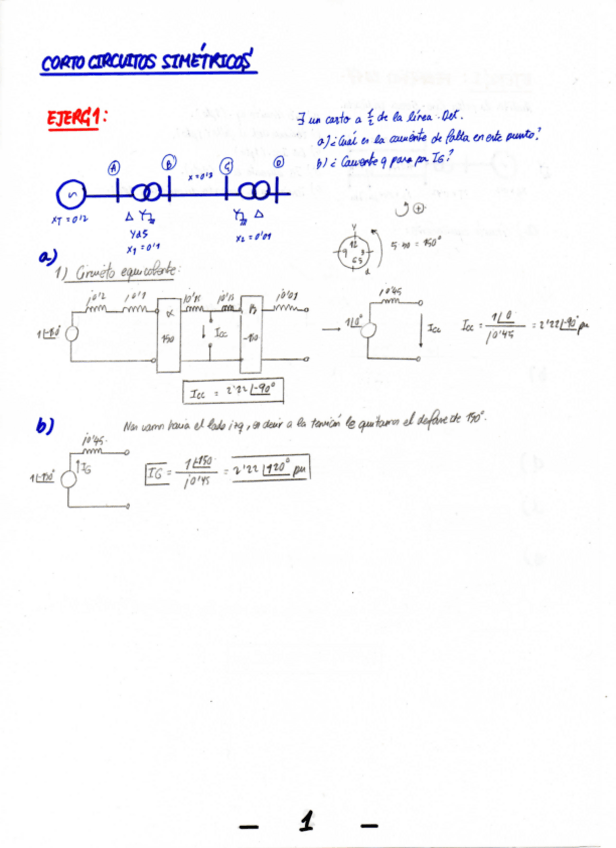 CORTOCIRCUITOS SIMÉTRICOS
EJERC 1:
∃ un corto a 1/2 de la línea. Det.
a) ¿Cuál es la corriente de falla en este punto?
b) ¿Corriente q pasa por IG?
A B C D
X = 0'3
Δ Y Y Δ
Yd5
X1 = 0'1
X2 = 0'01
+
Y
12
9 3
6 5
d
5·30 = 150°
a)
1) Circuito equivalente:
j0'2 j0'1 j0'15 j0'15 j0'01
150 -150
Icc
1∠-150°
→ 1∠0° j0'45 Icc
Icc = 1∠0 / j0'45 = 2'22∠-90° pu
Icc = 2'22∠-90°
b) Nos vamos hacia el lado izq, es decir a la tensión le quitamos el desfase de 150°.
j0'45
1∠-150° IG
IG = 1∠-150 / j0'45 = 2'22∠120° pu
- 1 -